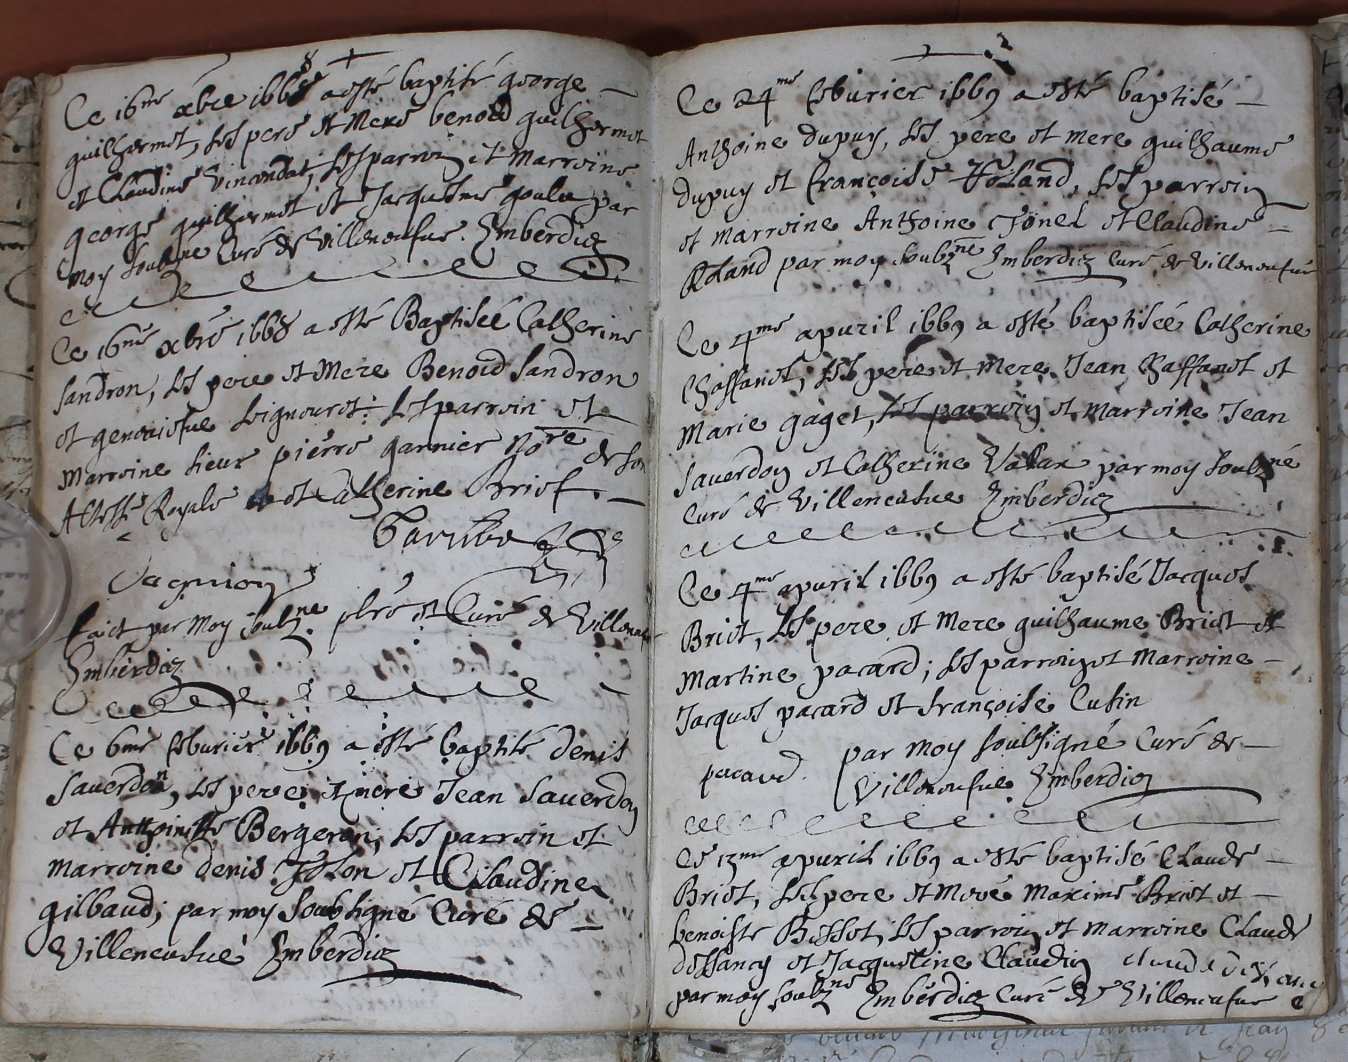 Ce 16me xbre 1668 a esté baptisé george
guilhermet, ses pere et Mere benoid guilhermet
et Claudine Vincendat, ses parroin et Marroine
george guilhermet et Jacqueme goulu par
moy soubzne Curé de Villeneufue. Imberdis
Ce 16me xbre 1668 a esté Baptisée Catherine
Sandron, ses pere et Mere Benoid Sandron
et geneuiefue Loignouret: ses parroin et
Marroine sieur pierre garnier No.re de son
Altesse Royale et Catherine Briet.
Vagnion
faict par Moy soubzne pbre et Curé de Villeneufue
Imberdis
Ce 6me feburier 1669 a esté baptisé denis
Sauerdon, ses pere et mere Jean Sauerdon
et Anthoinette Bergeron, ses parroin et
Marroine denis et Claudine
gilbaud; par moy soubsigné Curé de
Villeneufue Imberdis
Ce 24me feburier 1669 a esté baptisé
Anthoine dupuy, ses pere et mere guilhaume
dupuy et françoise Roland, ses parroin
et marroine Anthoine et Claudine
Roland par moy soubzne Imberdis Curé de Villeneufue
Ce 4me apuril 1669 a esté baptisée Catherine
Chaffanet, ses pere et mere Jean Chaffanet et
Marie gaget, ses parroin et Marroine Jean
Sauerdon et Catherine Vallax par moy soubzné
Curé de Villeneufue Imberdis
Ce 4me apuril 1669 a esté baptisé Jacques
Briet, ses pere et Mere guilhaume Briet et
Martine pacard; ses parroin et Marroine
Jacques pacard et françoise Cusin
par moy soubsigné Curé de
pacard Villeneufue Imberdis
Ce 13me apuril 1669 a esté baptisé Claude
Briet, ses pere et Mere Maxime Briet et
benoiste Bissot, ses parroin et marroine Claude
dessancy et Jacquetine Claudin
par moy soubzne Imberdis Curé de Villeneufue